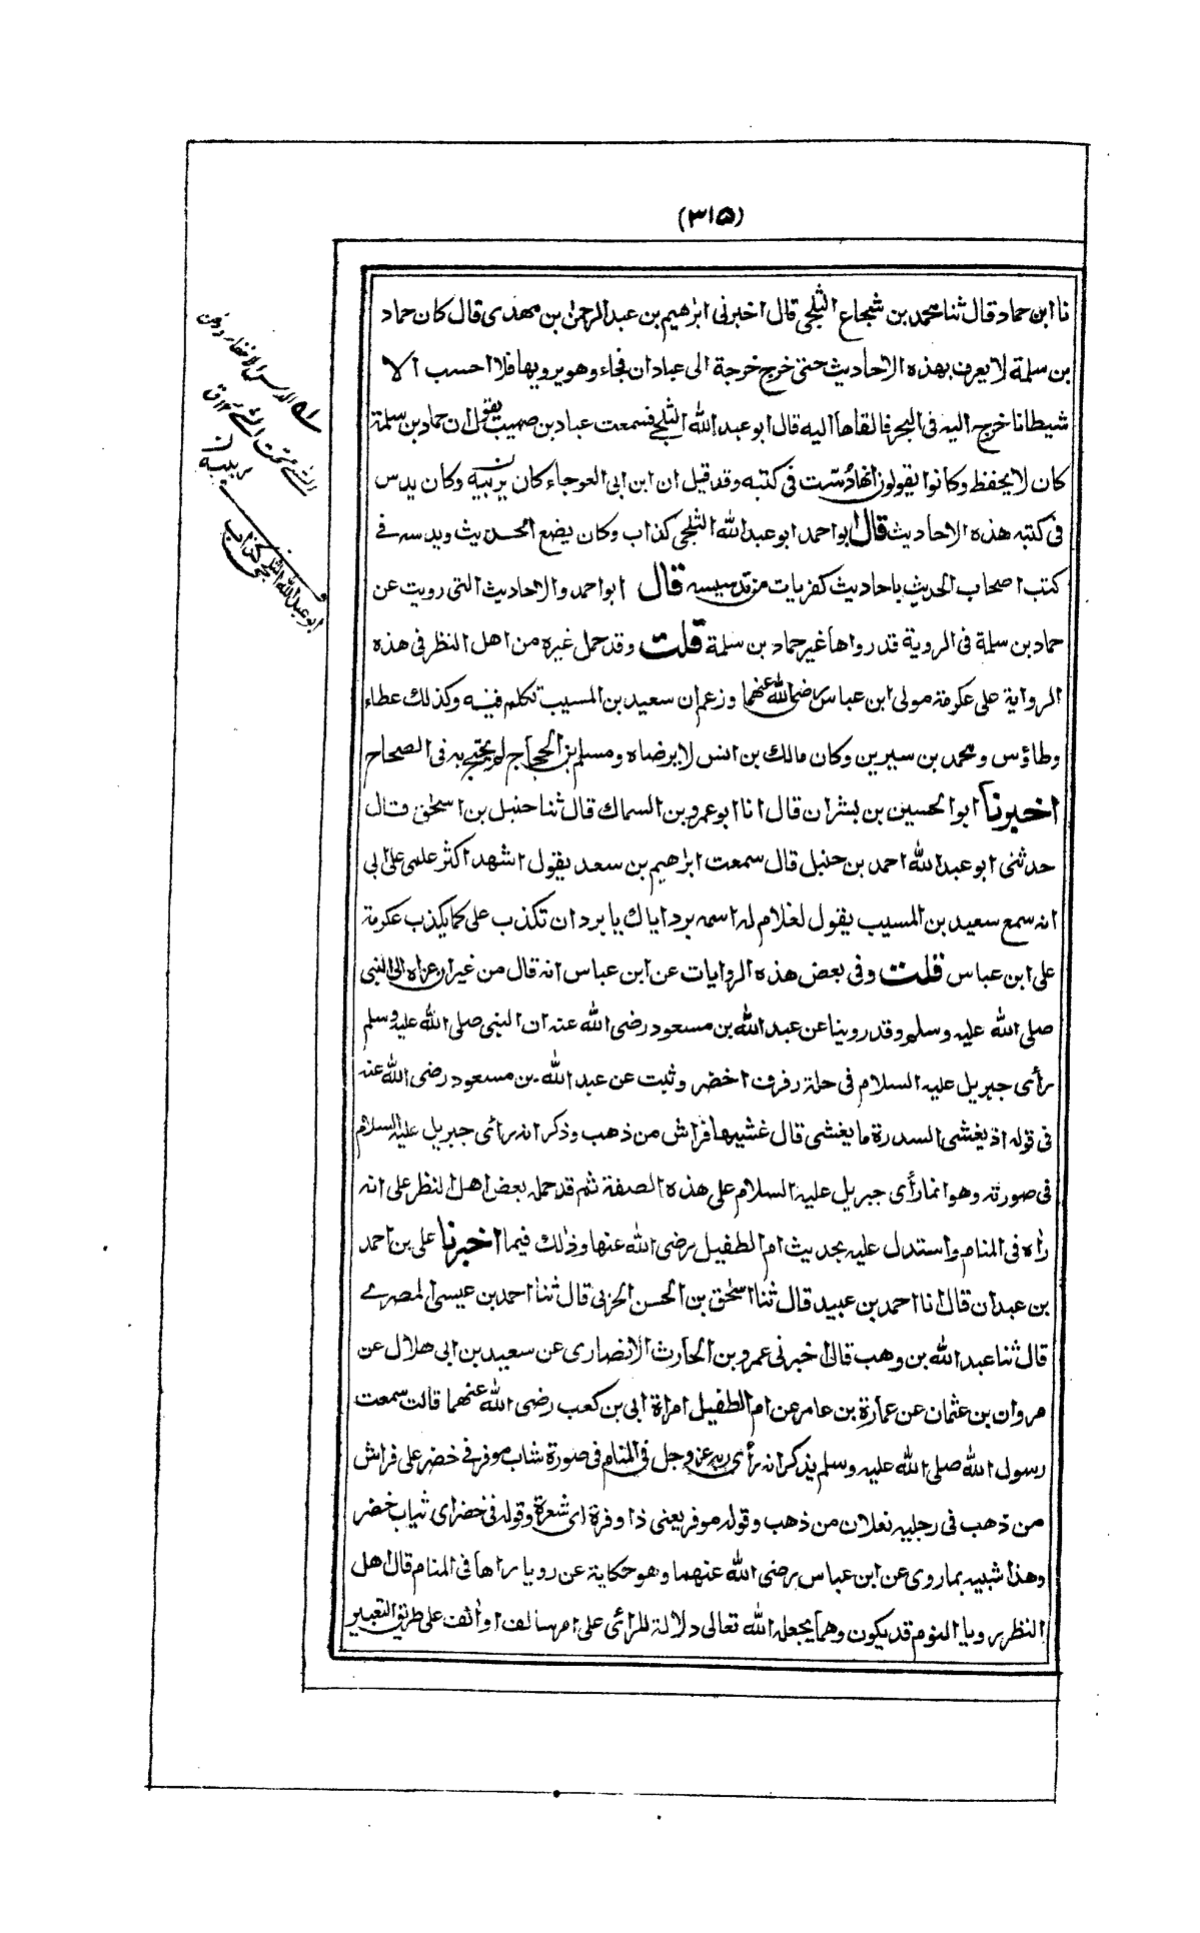 (٣١٥)
نا ابن حماد قال ثنا محمد بن شجاع الثلجى قال اخبرنى ابرٰهيم بن عبد الرحمٰن بن مهدى قال كان حماد
بن سلمة لا يعرف بهذه الاحاديث حتى خرج خرجة الى عبادان فجاء وهو يرويها فلا احسب الا
شيطانا خرج اليه فى البحر فالقاها اليه قال ابو عبد الله الثلجى فسمعت عباد بن صهيب يقول ان حماد بن سلمة
كان لا يحفظ وكانوا يقولون انها دُسّت فى كتبه وقد قيل ان ابن ابى العوجاء كان ربيبه وكان يدس
فى كتبه هذه الاحاديث قال ابو احمد ابو عبد الله الثلجى كذاب وكان يضع الحديث ويدسه فے
كتب اصحاب الحديث باحاديث كفريات من تدسيسه قال ابو احمد والاحاديث التى رويت عن
حماد بن سلمة فى الروية قد رواها غير حماد بن سلمة قلت وقد حمل غيره من اهل النظر فى هذه
الرواية على عكرمة مولى ابن عباس رضى الله عنهما وزعم ان سعيد بن المسيب تكلم فيه وكذلك عطاء
وطاؤس ومحمد بن سيرين وكان مالك بن انس لا يرضاه ومسلم بن الحجاج لم يحتج به فى الصحاح
اخبرنا ابو الحسين بن بشران قال انا ابو عمرو بن السماك قال ثنا حنبل بن اسحٰق قال
حدثنى ابو عبد الله احمد بن حنبل قال سمعت ابرٰهيم بن سعد يقول اشهد اكثر علمى على ابى
انه سمع سعيد بن المسيب يقول لغلام له اسمه برد اياك يا برد ان تكذب على كما يكذب عكرمة
على ابن عباس قلت وفى بعض هذه الروايات عن ابن عباس انه قال من غير ان عزاه الى النبى
صلى الله عليه وسلم وقد روينا عن عبد الله بن مسعود رضى الله عنه ان النبى صلى الله عليه وسلم
رأى جبريل عليه السلام فى حلة رفرف اخضر وثبت عن عبد الله بن مسعود رضى الله عنه
فى قوله اذ يغشى السدرة ما يغشى قال غشيها فراش من ذهب وذكر انه رأى جبريل عليه السلام
فى صورته وهو انما رأى جبريل عليه السلام على هذه الصفة ثم قد حمله بعض اهل النظر على انه
رأه فى المنام واستدل عليه بحديث ام الطفيل رضى الله عنها وذٰلك فيما اخبرنا على بن احمد
بن عبدان قال انا احمد بن عبيد قال ثنا اسحٰق بن الحسن الحربى قال ثنا احمد بن عيسى المصرے
قال ثنا عبد الله بن وهب قال اخبرنى عمرو بن الحارث الانصارى عن سعيد بن ابى هلال عن
مروان بن عثمان عن عمارة بن عامر عن ام الطفيل امراة ابى بن كعب رضى الله عنهما قالت سمعت
رسول الله صلى الله عليه وسلم يذكر انه رأى ربه عز وجل فى المنام فى صورة شاب موفر فے خضر على فراش
من ذهب فى رجليه نعلان من ذهب وقوله موفر يعنى ذا وفرة اى شعرة وقوله فى خضر اى ثياب خضر
وهذا شبيه بما روى عن ابن عباس رضى الله عنهما وهو حكاية عن رويا رأها فى المنام قال اهل
النظر رويا النوم قد يكون وهما يجعله الله تعالى دلالة للرائى على امر سالف او آنف على طريق التعبير
ابو عبد الله الثلجى كذاب